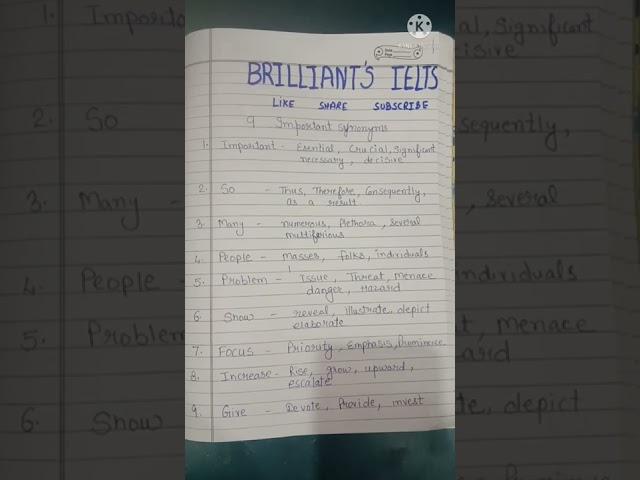 BRILLIANT'S IELTS
LIKE SHARE SUBSCRIBE
9 Important synonyms
1. Important - Esential, Crucial, Significant
necessary, decisive
2. So - Thus, Therefore, Consequently,
as a result
3. Many - numerous, Plethora, several
multiferious
4. People - Masses, folks, individuals
5. Problem - Issue, Threat, Menace
danger, Hazard
6. Show - reveal, illustrate, depict
elaborate
7. Focus - Priority, Emphasis, Prominence
8. Increase - Rise, grow, upward,
escalate
9. Give - Devote, Provide, invest